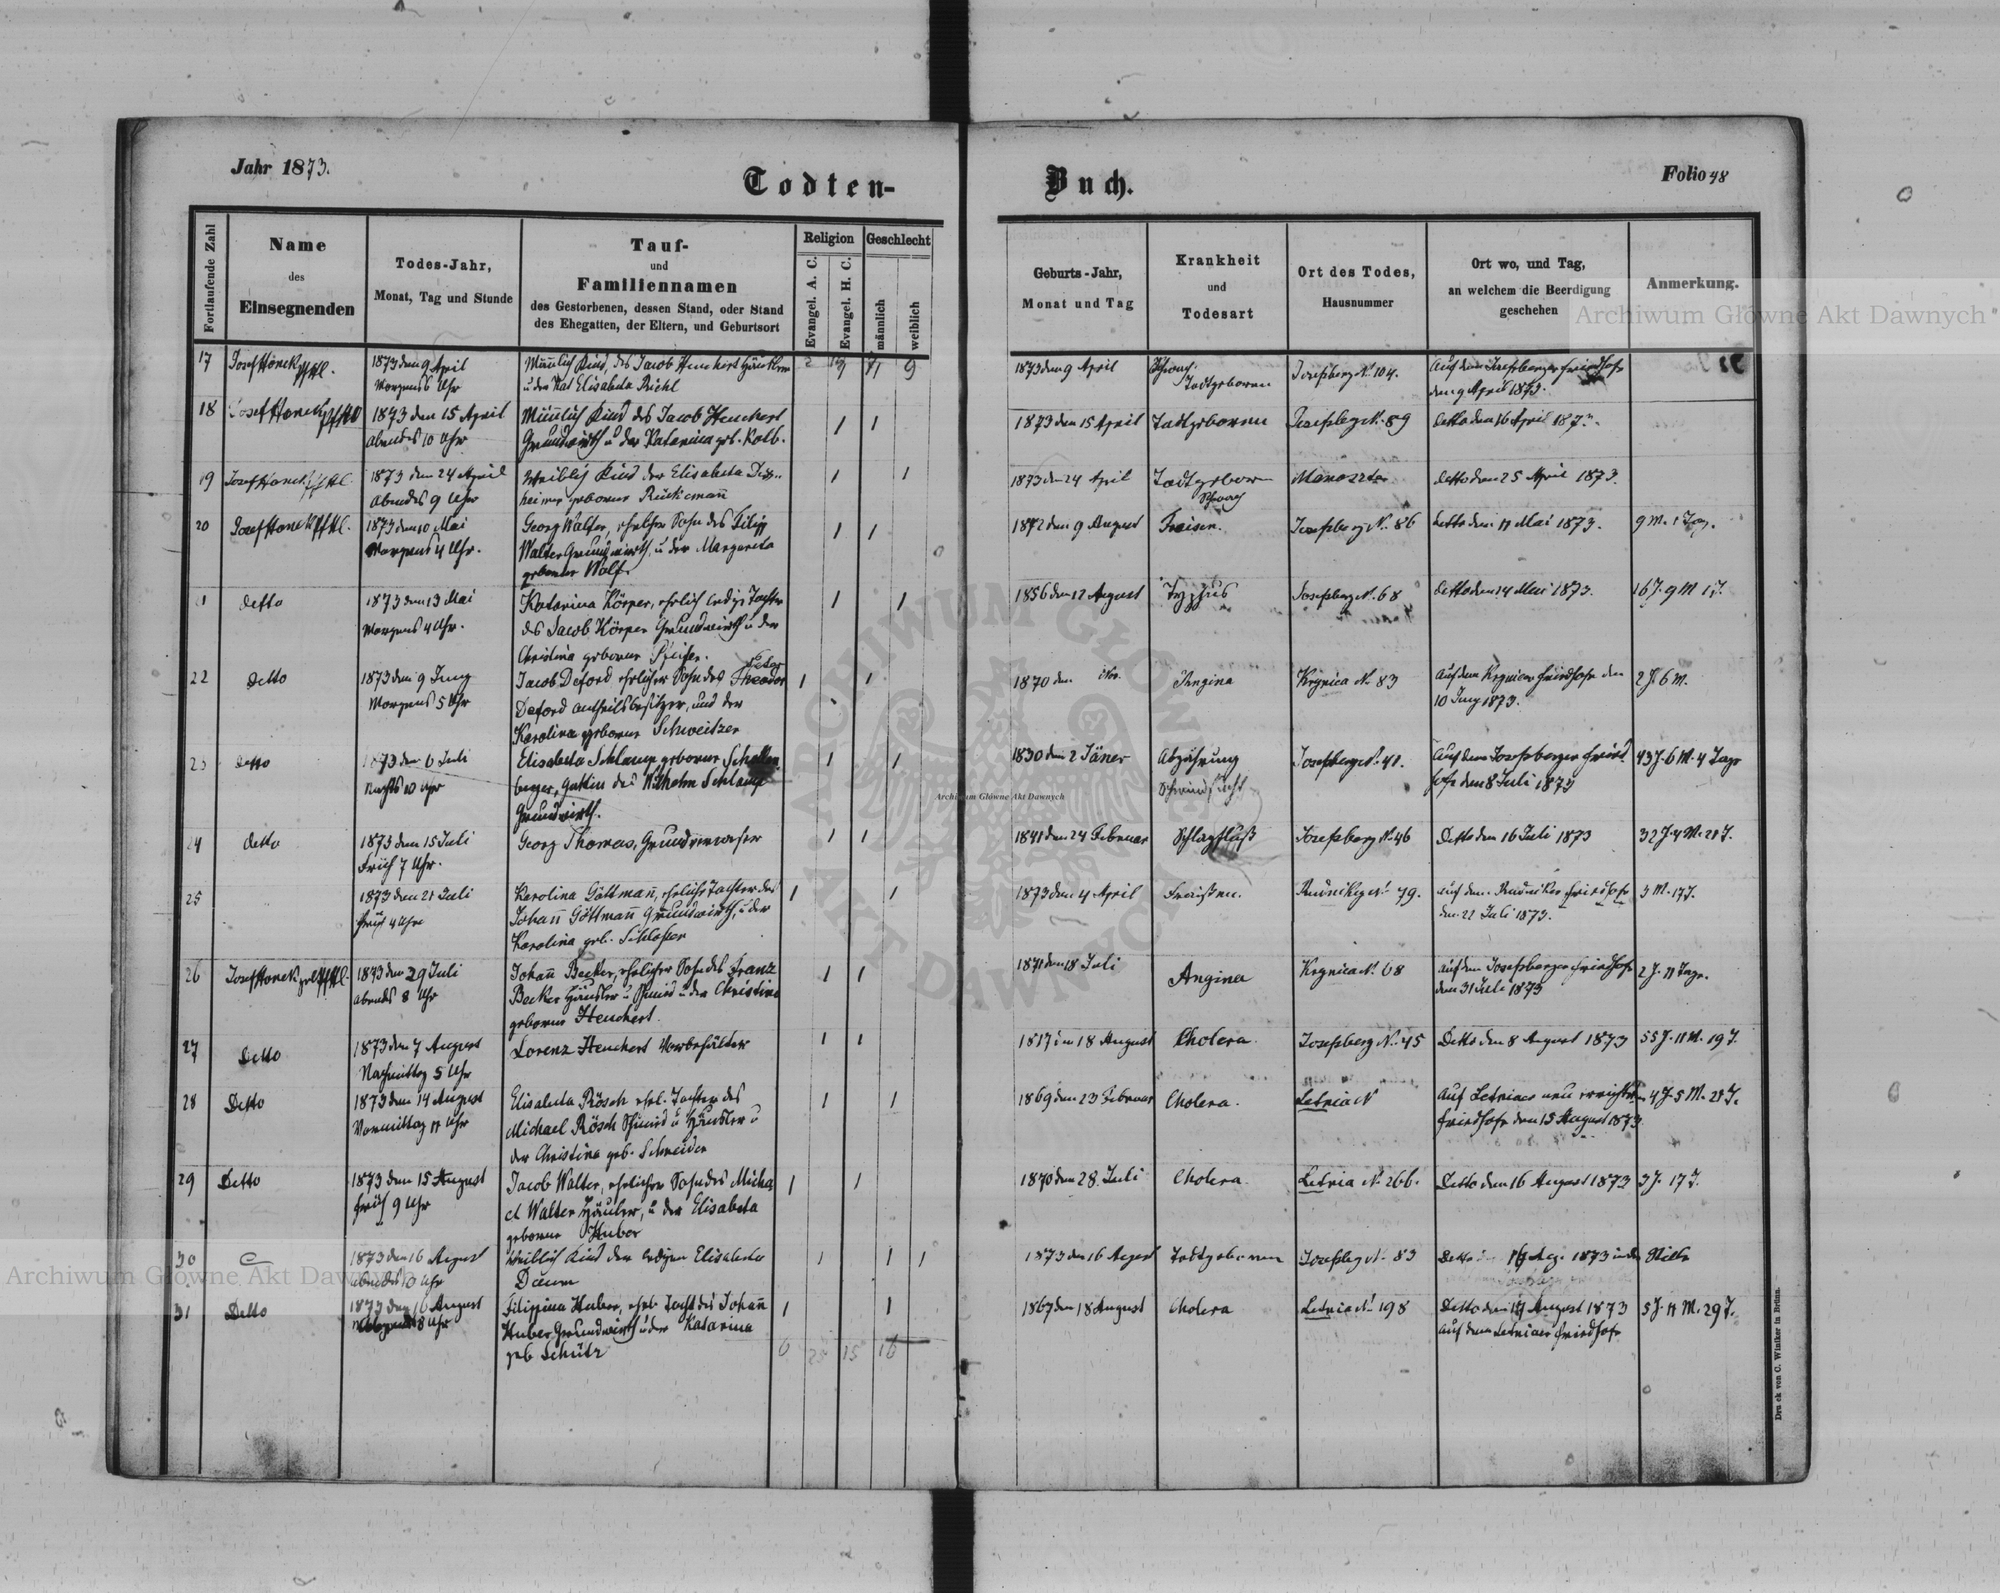 Jahr 1873.
Todten-
Buch.
Folio 48
Fortlaufende Zahl
Name
des
Einsegnenden
Todes-Jahr,
Monat, Tag und Stunde
Tauf-
und
Familiennamen
des Gestorbenen, dessen Stand, oder Stand
des Ehegatten, der Eltern, und Geburtsort
Religion
Evangel. A. C.
Evangel. H. C.
Geschlecht
männlich
weiblich
Geburts-Jahr,
Monat und Tag
Krankheit
und
Todesart
Ort des Todes,
Hausnummer
Ort wo, und Tag,
an welchem die Beerdigung
geschehen
Anmerkung.
17
Josef Honek
1873 den 9 April
Morgens 6 Uhr
Männlich Kind, des Jacob Heuchert Häusler
u der Elisabeta
1873 den 9 April
Todtgeboren
Josefsberg N. 104.
Auf dem Josefsberger Friedhofe
den 9 April 1873.
18
Josef Honek
1873 den 15 April
abends 10 Uhr
Männlich Kind des Jacob Heuchert
Grundwirth u der Katarina geb. Kolb.
1873 den 15 April
Todtgeboren
Josefsberg N. 89
Detto den 16 April 1873.
19
Josef Honek
1873 den 24 April
Abends 9 Uhr
Weiblich Kind der Elisabeta
heimer geborene Rückemann
1873 den 24 April
Todtgeboren
Detto den 25 April 1873.
20
Josef Honek
1873 den 10 Mai
Morgens 4 Uhr.
Georg Walter, ehelicher Sohn des Filipp
Walter Grundwirth u der Margareta
geborene Wolf
1872 den 9 August
Fraisen.
Josefsberg N. 86
Detto den 11 Mai 1873.
9 M. 1 Tag.
Detto
1873 den 13 Mai
Morgens 4 Uhr.
Katarina Körper, ehelich ledige Tochter
des Jacob Körper Grundwirth u der
Christina geborene
1856 den 12 August
Typhus
Josefsberg N. 68
Detto den 14 Mai 1873.
16 J. 9 M 1 T.
22
Detto
1873 den 9 Juny
Morgens 5 Uhr
Jacob Deford ehelicher Sohn des Theodor
Peter
Deford Antheilsbesitzer, und der
Karolina geborene Schweitzer
1870 den
Angina
Krynica N. 83
Auf dem Krynicer Friedhofe den
10 Juny 1873.
2 J. 6 M.
23
Detto
1873 den 6 Juli
Nachts 10 Uhr
Elisabeta Schlamp geborene Schellen
berger, Gattin des Wilhelm Schlamp
Grundwirth.
1830 den 2 Jäner
Abzehrung
Schwindsucht
Josefsberg N. 41.
Auf dem Josefsberger Fried
hofe den 8 Juli 1873
43 J. 6 M. 4 Tage
24
Detto
1873 den 15 Juli
Früh 7 Uhr.
Georg Thomas, Grundverweser
1841 den 24 Februar
Schlagfluß
Josefsberg N. 46
Detto den 16 Juli 1873
32 J. 4 M. 21 T.
25
1873 den 21 Juli
früh 4 Uhr
Karolina Göttmann, eheliche Tochter des
Johann Göttmann Grundwirth, u der
Karolina geb. Schlosser
1873 den 4 April
Fraißen.
79.
auf dem Friedhofe
den 22 Juli 1873.
3 M. 17 T.
26
Josef Honek
1873 den 29 Juli
abends 8 Uhr
Johann Becker, ehelicher Sohn des Franz
Becker Häusler u Schmied u der Christina
geborene Heuchert.
1871 den 18 Juli
Angina
Krynica N. 68
auf dem Josefsberger Friedhofe
den 31 Juli 1873
2 J. 11 Tage.
27
Detto
1873 den 7 August
Nachmittag 5 Uhr
Lorenz Heuchert Vorbehälter
1817 den 18 August
Cholera
Josefsberg N. 45
Detto den 8 August 1873
55 J. 11 M. 19 T.
28
Detto
1873 den 14 August
Vormittag 11 Uhr
Elisabeta Rösch ehel. Tochter des
Michael Rösch Schmied u Häusler u
der Christina geb. Schneider
1869 den 23 Februar
Cholera.
Letnia N
Auf Letniaer neu errichteten
Friedhofe den 15 August 1873.
4 J. 5 M. 21 T.
29
Detto
1873 den 15 August
früh 9 Uhr
Jacob Walter, ehelicher Sohn des Micha
el Walter Häusler, u der Elisabeta
geborene Huber
1870 den 28. Juli
Cholera.
Letnia N. 266.
Detto den 16 August 1873
3 J. 17 T.
30
1873 den 16 August
abends 10 Uhr
Weiblich Kind der ledigen Elisabeta
Daum
1873 den 16 August
Todtgeboren
Josefsberg N. 83
Detto 1873
31
Detto
1873 den 16 August
8 Uhr
Filippina Huber, ehel. Tocht des Johann
Huber Grundwirth u der Katarina
geb Schütz
1867 den 18 August
Cholera
Letnia N. 198
Detto den 17 August 1873
auf dem Letniaer Friedhofe
5 J. 11 M. 29 T.
6 25 15 16
Druck von C. Winiker in Brünn.
Archiwum Główne Akt Dawnych
Archiwum Główne Akt Dawnych
Archiwum Główne Akt Dawnych
ARCHIWUM GŁÓWNE AKT DAWNYCH